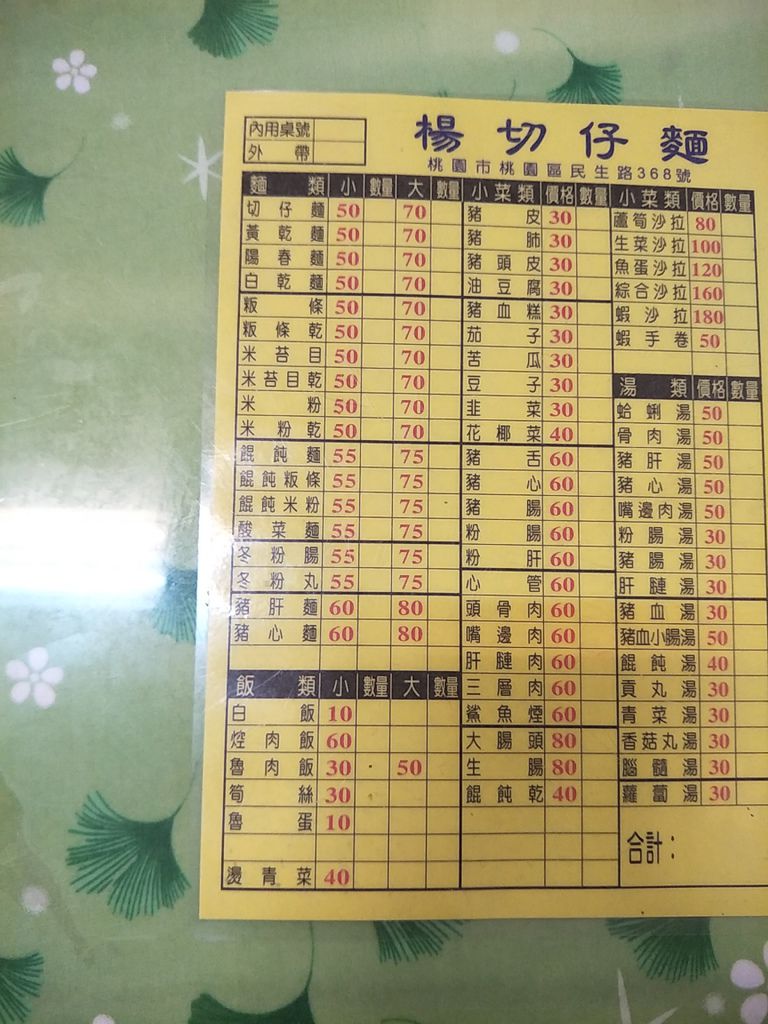 內用桌號
外帶
楊切仔麵
桃園市桃園區民生路368號
麵類 小 數量 大 數量
切仔麵 50 70
黃乾麵 50 70
陽春麵 50 70
白乾麵 50 70
粄條 50 70
粄條乾 50 70
米苔目 50 70
米苔目乾 50 70
米粉 50 70
米粉乾 50 70
餛飩麵 55 75
餛飩粄條 55 75
餛飩米粉 55 75
酸菜麵 55 75
冬粉腸 55 75
冬粉丸 55 75
豬肝麵 60 80
豬心麵 60 80
飯類 小 數量 大 數量
白飯 10
焢肉飯 60
魯肉飯 30 50
筍絲 30
魯蛋 10
燙青菜 40
小菜類 價格 數量
豬皮 30
豬肺 30
豬頭皮 30
油豆腐 30
豬血糕 30
茄子 30
苦瓜 30
豆子 30
韭菜 30
花椰菜 40
豬舌 60
豬心 60
豬腸 60
粉腸 60
粉肝 60
心管 60
頭骨肉 60
嘴邊肉 60
肝腱肉 60
三層肉 60
鯊魚煙 60
大腸頭 80
生腸 80
餛飩乾 40
小菜類 價格 數量
蘆筍沙拉 80
生菜沙拉 100
魚蛋沙拉 120
綜合沙拉 160
蝦沙拉 180
蝦手卷 50
湯類 價格 數量
蛤蜊湯 50
骨肉湯 50
豬肝湯 50
豬心湯 50
嘴邊肉湯 50
粉腸湯 30
豬腸湯 30
肝腱湯 30
豬血湯 30
豬血小腸湯 50
餛飩湯 40
貢丸湯 30
青菜湯 30
香菇丸湯 30
腦髓湯 30
蘿蔔湯 30
合計：